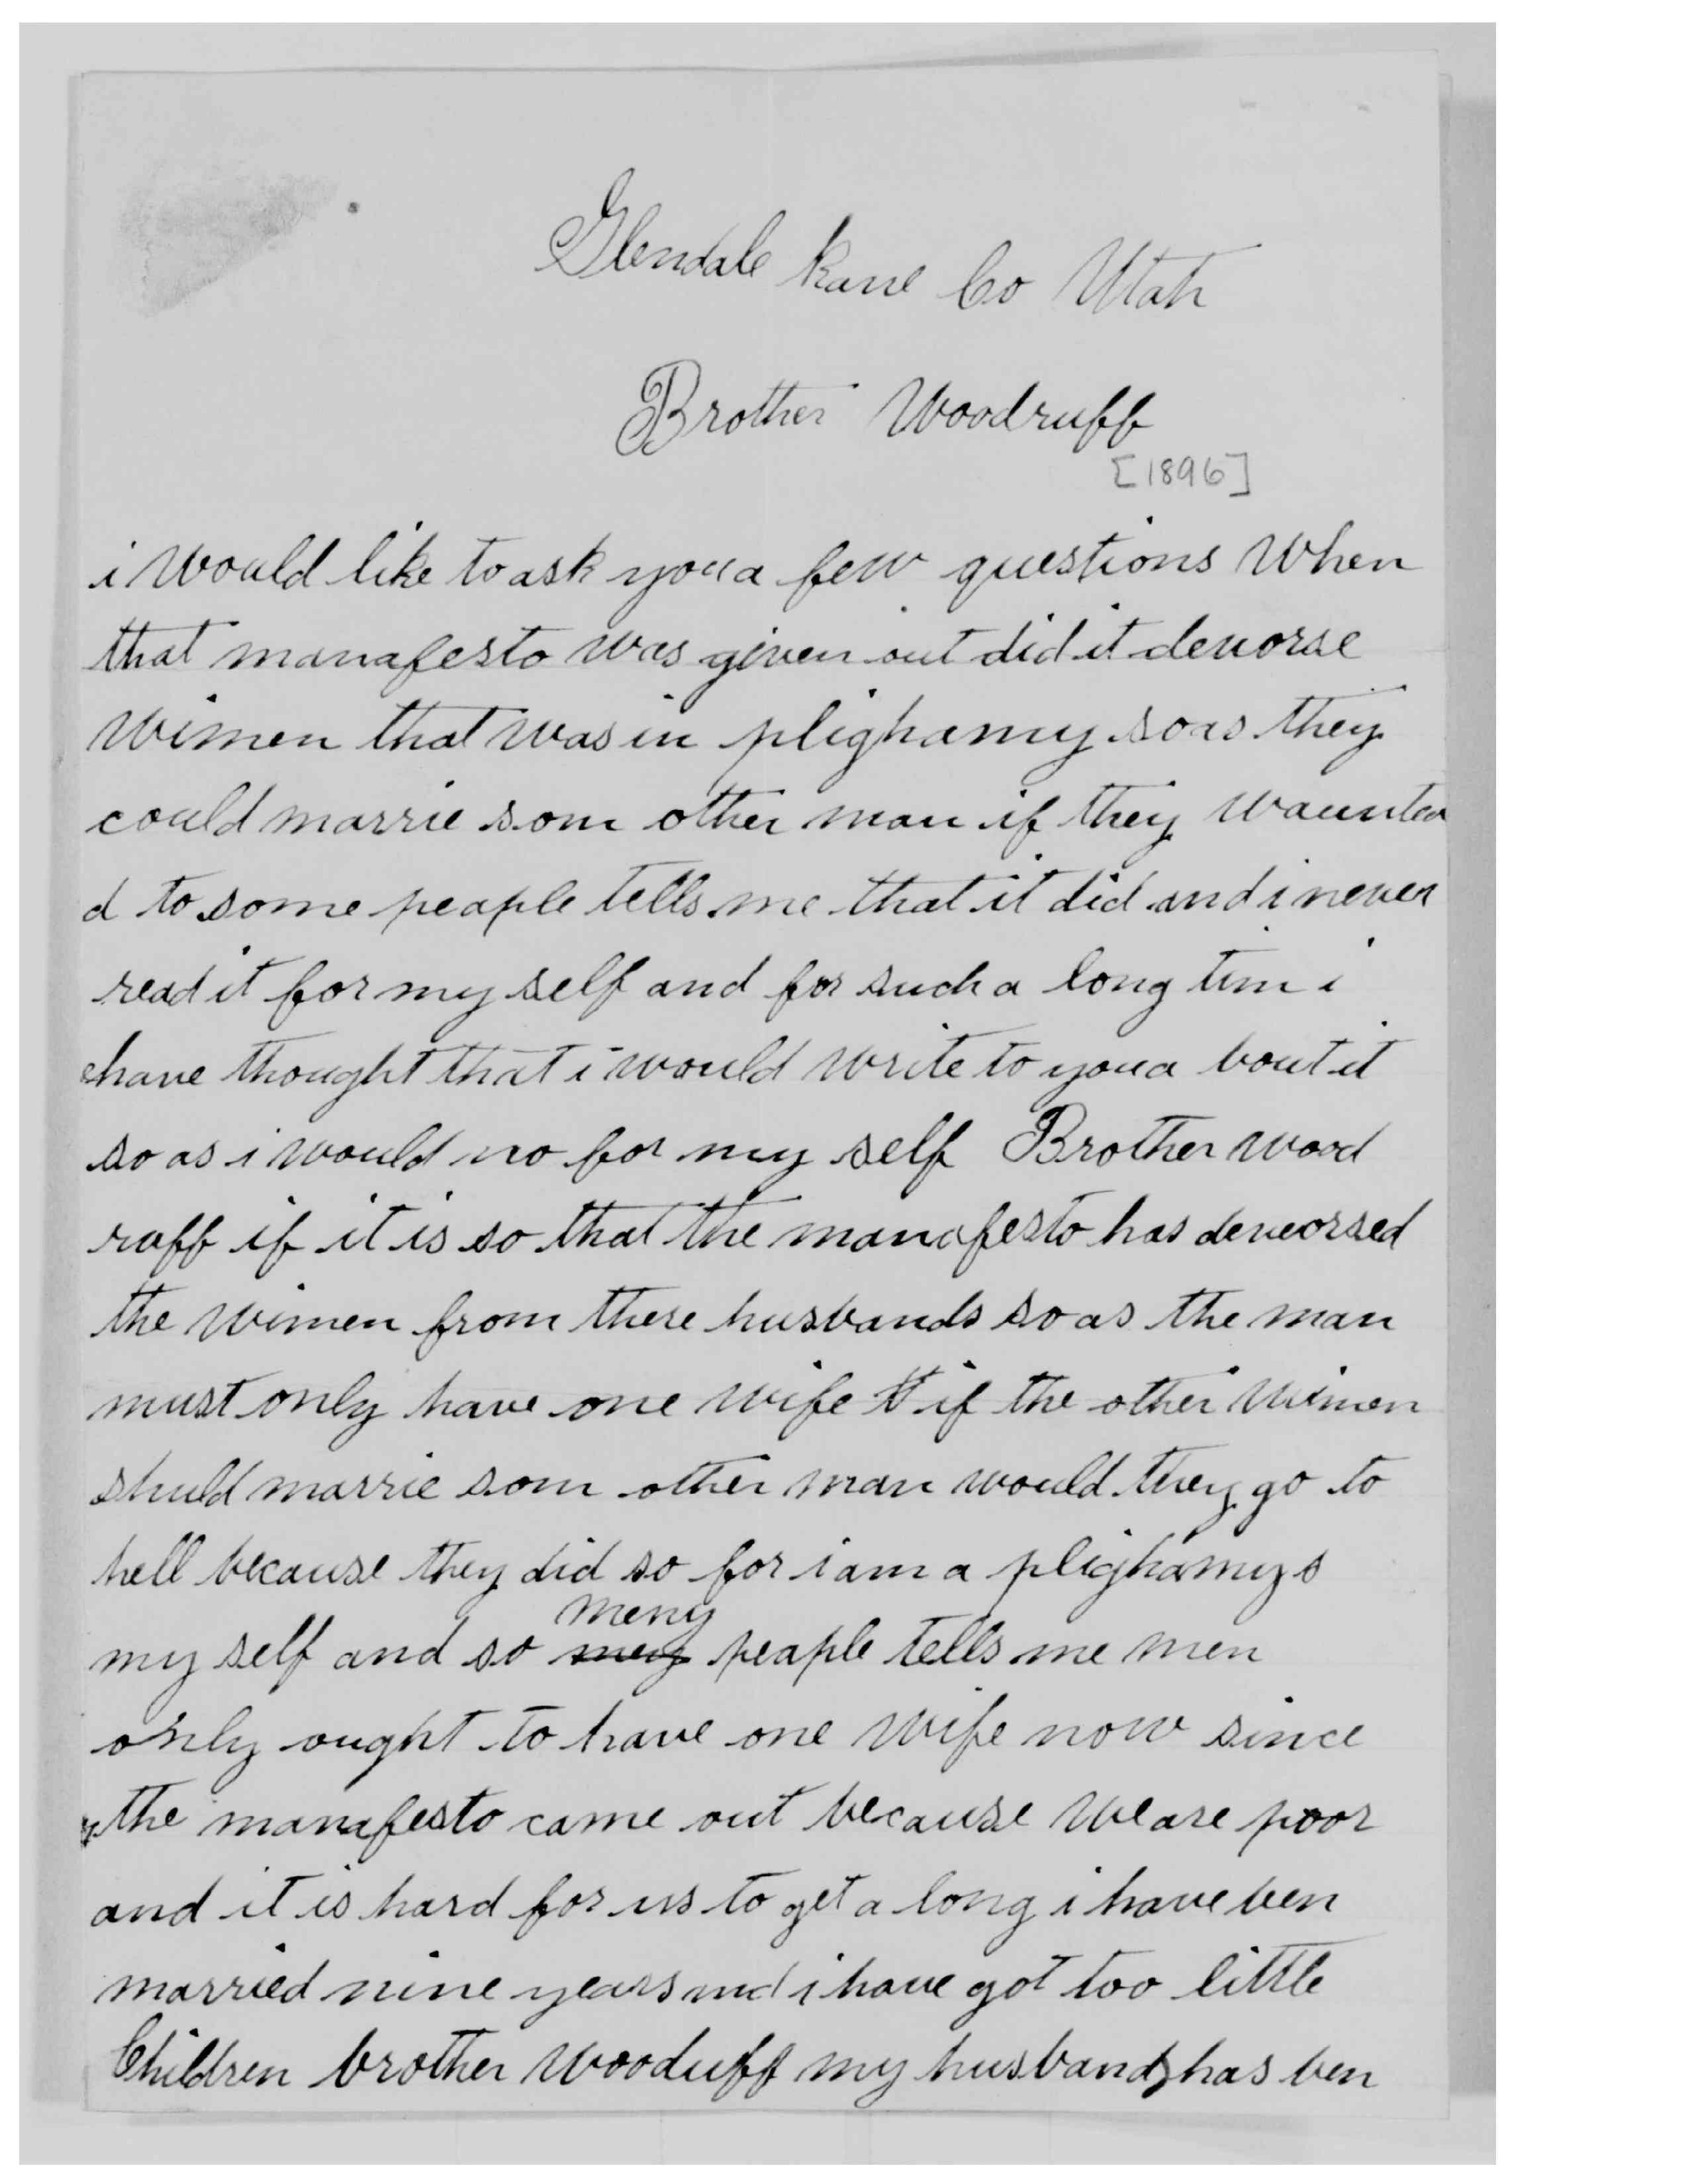 Glendale Kane Co Utah
Brother Woodruff
[1896]
i Would like to ask you a few questions When
that manafesto was given out did it devorse
Wimen that was in plighamy so as they
could marrie som other man if they waunted
d to some peaple tells me that it did and i never
read it for my self and for such a long tim i
have thought that i would write to you a bout it
so as i would no for my self Brother wood
ruff if it is so that the manafesto has deveorsed
the wimen from there husbands so as the man
must only have one wife if the other wimen
shuld marrie som other man would they go to
hell because they did so for i am a plighamys
meny
my self and so mey peaple tells me men
only ought to have one wife now since
the manafesto came out because we are poor
and it is hard for us to get a long i have ben
married nine years and i have got too little
Children brother Wooduff my husband has ben